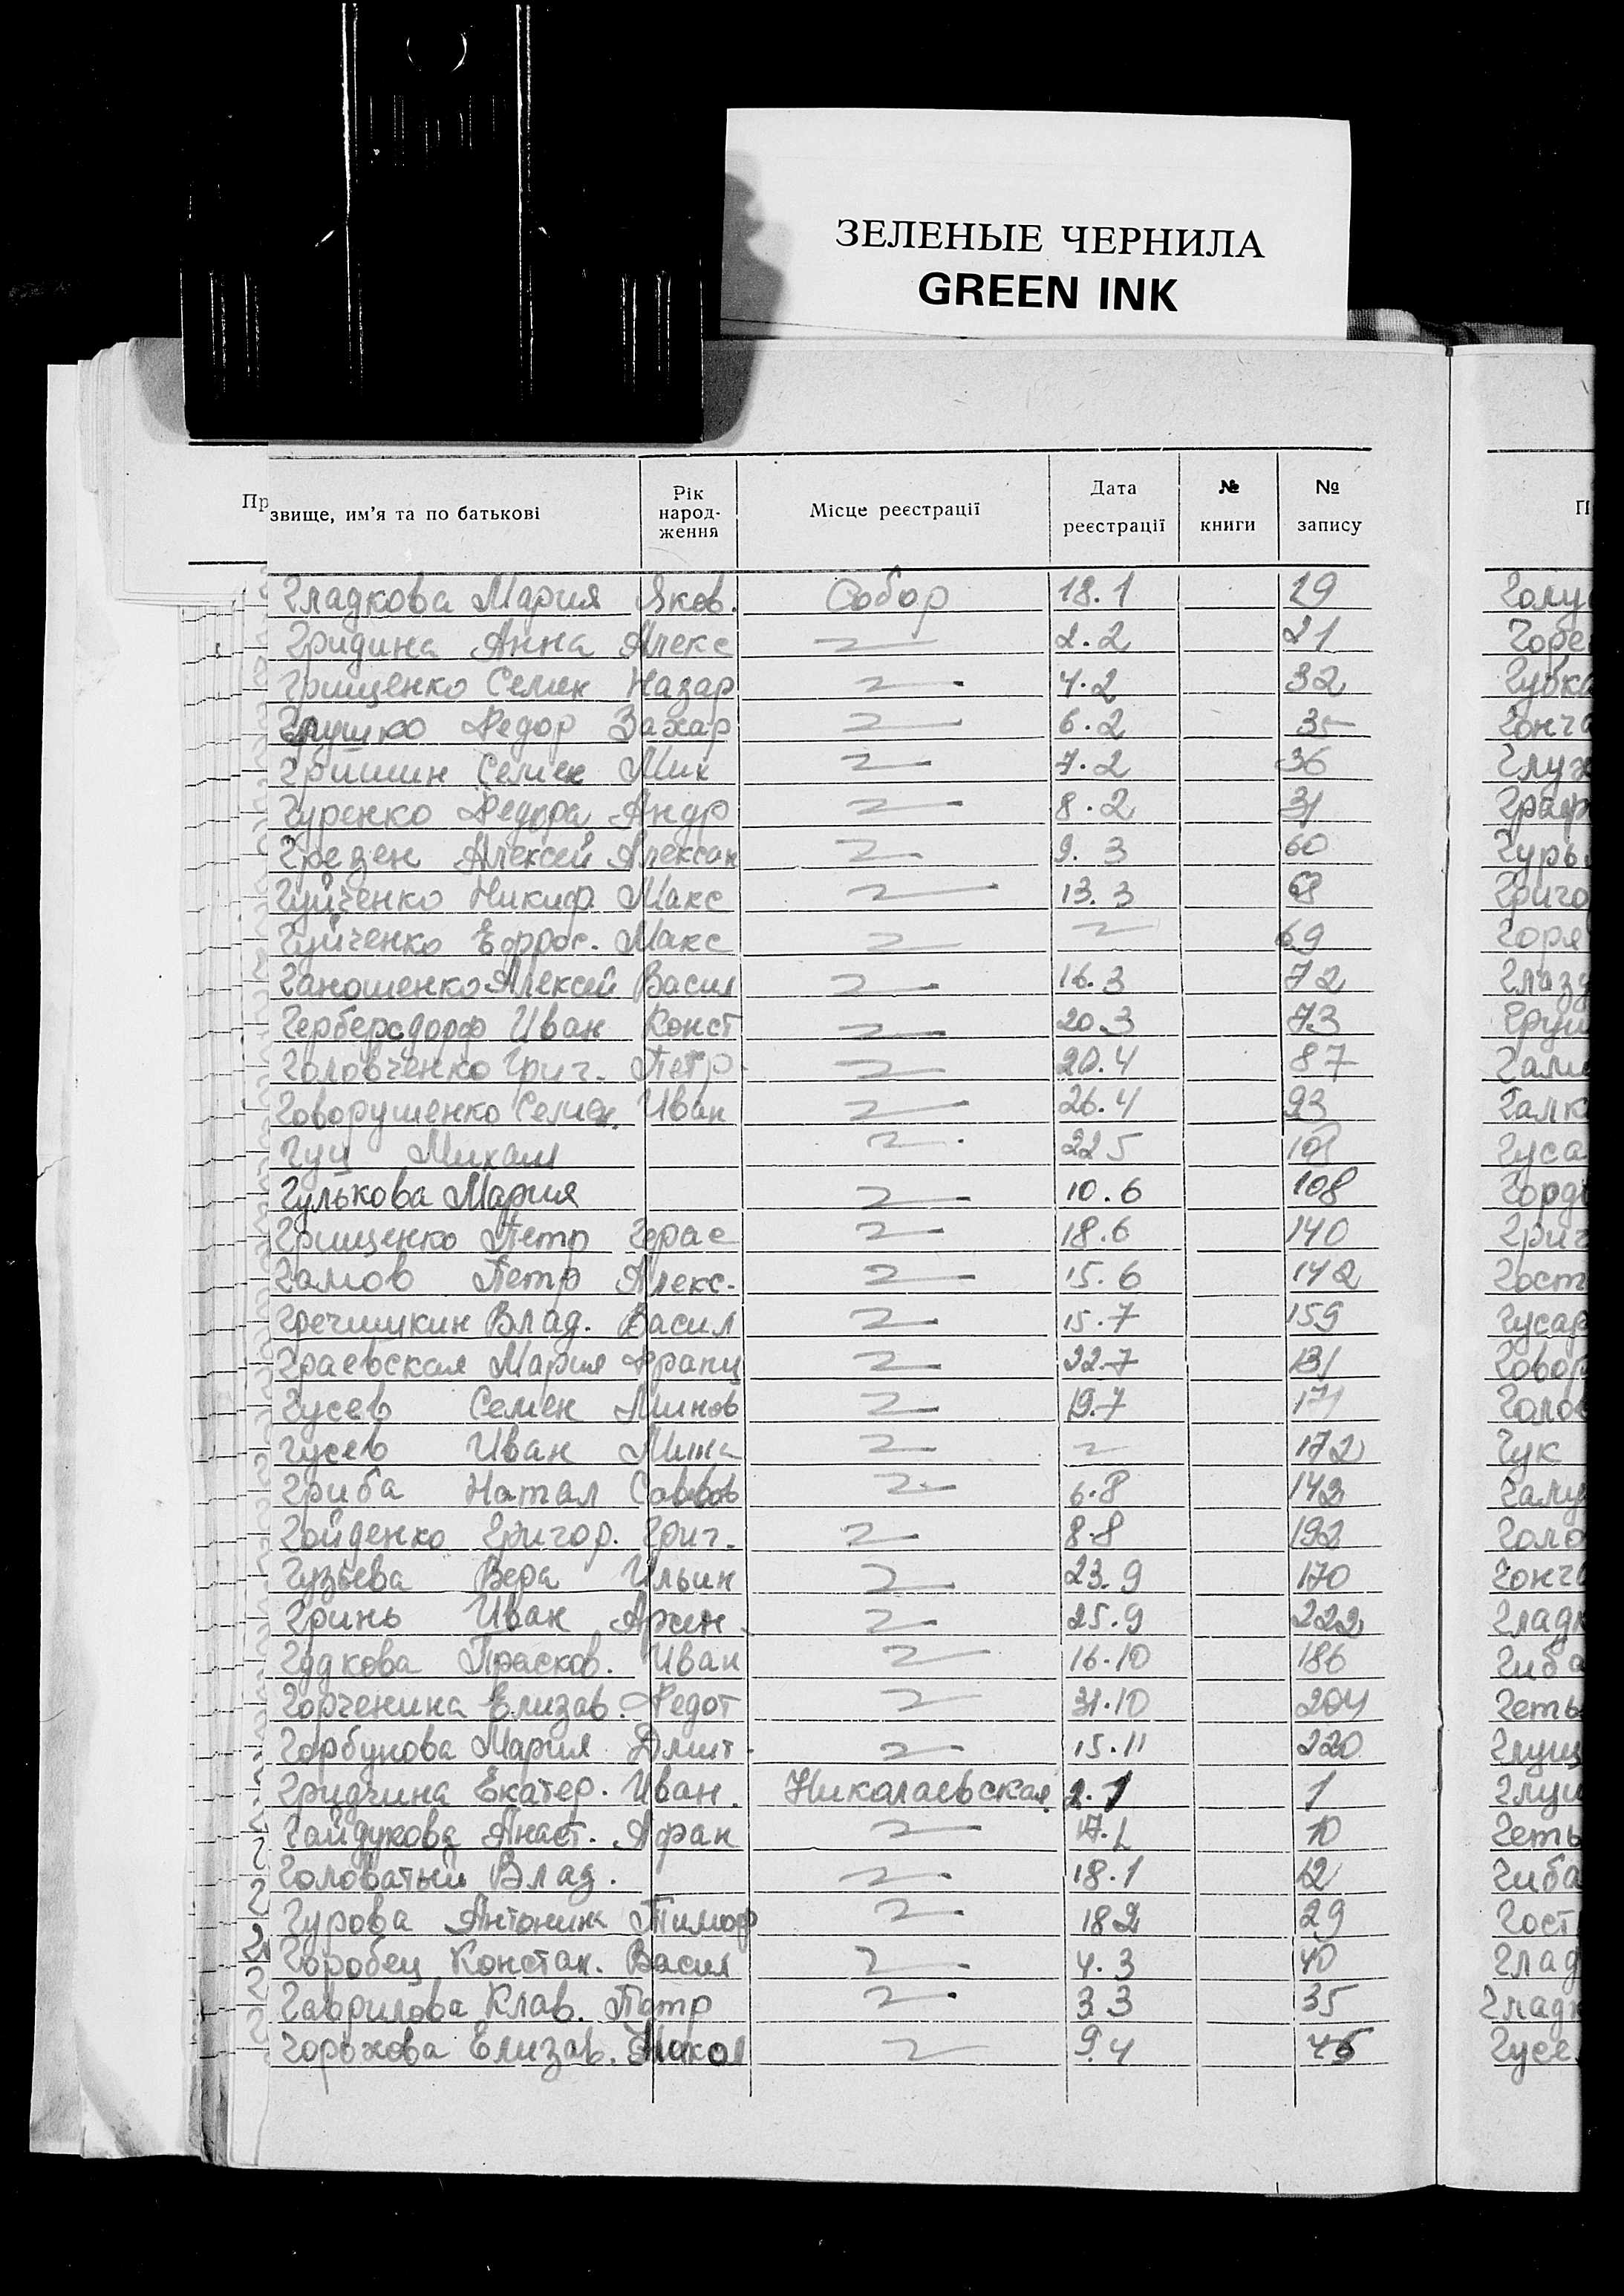 ЗЕЛЕНЫЕ ЧЕРНИЛА
GREEN INK
Пр звище, им'я та по батькові Рік народ-ження Місце реєстрації Дата реєстрації № книги № запису П
Гладкова Мария Яков. Собор 18.1 19 Голу
Гридина Анна Алекс 〃 2.2 21 Горе
Грищенко Семен Назар 〃 4.2 32 Губка
Грушко Федор Захар 〃 6.2 35 Гонча
Гришин Семен Мих 〃 7.2 36 Глух
Гуренко Федора Андр 〃 8.2 31 Граф
Грезен Алексей Алексан 〃 9.3 60 Гурь
Гуйченко Никиф. Макс 〃 13.3 68 Григо
Гуйченко Ефрос. Макс 〃 〃 69 Горя
Ганошенко Алексей Васил 〃 16.3 72 Глазд
Герберсдорф Иван Конст 〃 20.3 73 Груш
Головченко Григ. Петр. 〃 20.4 87
Говорушенко Семен. Иван 〃 26.4 93 Галк
Гуц Михаил 〃 22 5 Гуса
Гулькова Мария 〃 10.6 108 Горд
Грищенко Петр Герас 〃 18.6 140 Григ
Гамов Петр Алекс. 〃 15.6 142 Гост
Гречишкин Влад. Васил 〃 15.7 159 Гусар
Граевская Мария Франц 〃 22.7 131 Говор
Гусев Семен Минов 〃 19.7 171 Голов
Гусев Иван Мина 〃 〃 172 Гук
Гриба Натал Саввов 〃 6.8 142
Гойденко Григор. Григ. 〃 8.8 192 Голо
Гузьева Вера Ильин 〃 23.9 170 Гонча
Гринь Иван 〃 25.9 222 Гладк
Гудкова Прасков. Иван 〃 16.10 186 Гиба
Горченина Елизав. Федот 〃 31.10 204 Геть
Горбунова Мария Дмит. 〃 15.11 220 Глущ
Гридчина Екатер. Иван. Николаевская 2.1 1
Гайдукова Анаст. Афан 〃 17.1 10 Геть
Головатый Влад. 〃 18.1 12 Гиба
Гурова Антонина Тимоф 〃 18 2 29 Гост
Горобец Констан. Васил 〃 4.3 40 Глад
Гаврилова Клав. Петр 〃 3 3 35 Гладк
Горохова Елизав. Никол 〃 9.4 46 Гусе